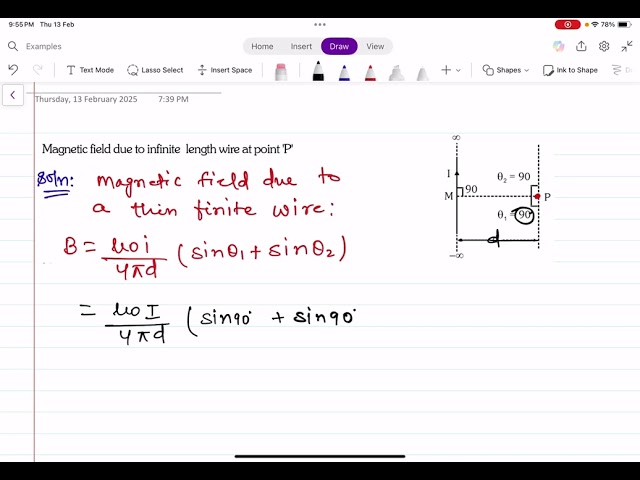 9:55 PM Thu 13 Feb
78%
Examples
Home Insert Draw View
Text Mode Lasso Select Insert Space Shapes Ink to Shape
Thursday, 13 February 2025 7:39 PM
Magnetic field due to infinite length wire at point 'P'
Soln: Magnetic field due to
a thin finite wire:
B = μ0i/4πd (sinθ1 + sinθ2)
= μ0I/4πd (sin90° + sin90°
∞
I
θ2 = 90
M 90 P
θ1 = 90
d
-∞